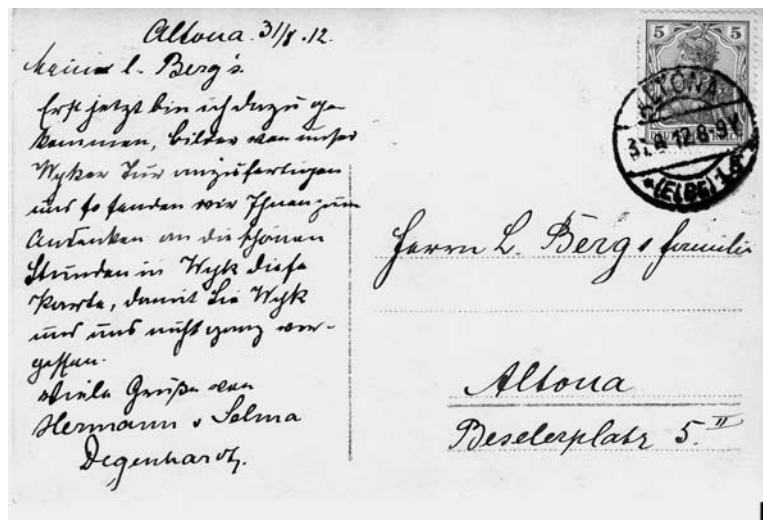 Altona. 31/8.12.
Meine l. Berg's.
Erst jetzt bin ich dazu ge
kommen, Bilder von unser
Wyker Tur anzufertigen
und so senden wir Ihnen zum
Andenken an die schönen
Stunden in Wyk diese
Karte, damit Sie Wyk
und uns nicht ganz ver-
gessen.
Viele Grüße von
Hermann u Selma
Degenhardt.
5 5
DEUTSCHES REICH
ALTONA
31.8.12.8-9V
*(ELBE)1
Herrn L. Berg u familie
Altona
Beselerplatz 5. II